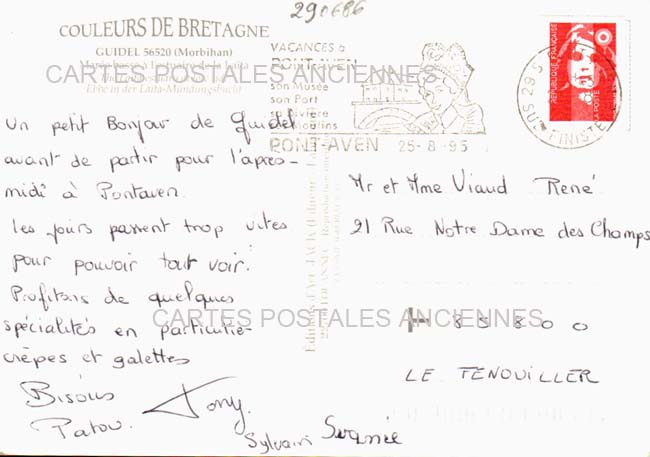 290686
COULEURS DE BRETAGNE
GUIDEL 56520 (Morbihan)
Marée basse à l'estuaire de la Laïta
Ebbe in der Laïta-Mündungsbucht
CARTES POSTALES ANCIENNES
VACANCES à
PONT-AVEN
son Musée
son Port
sa Rivière
PONT-AVEN 25-8-95
29 S
FINISTE
REPUBLIQUE FRANÇAISE
LA POSTE
Un petit Bonjour de Guidel
avant de partir pour l'après-
midi à Pontaven.
Les jours passent trop vites
pour pouvoir tout voir.
Profitons de quelques
spécialités en particulie-
crèpes et galettes
Bisous
Patou.
Tony.
Sylvain
Mr et Mme Viaud René
21 Rue Notre Dame des Champs
85800
LE FENOUILLER
CARTES POSTALES ANCIENNES